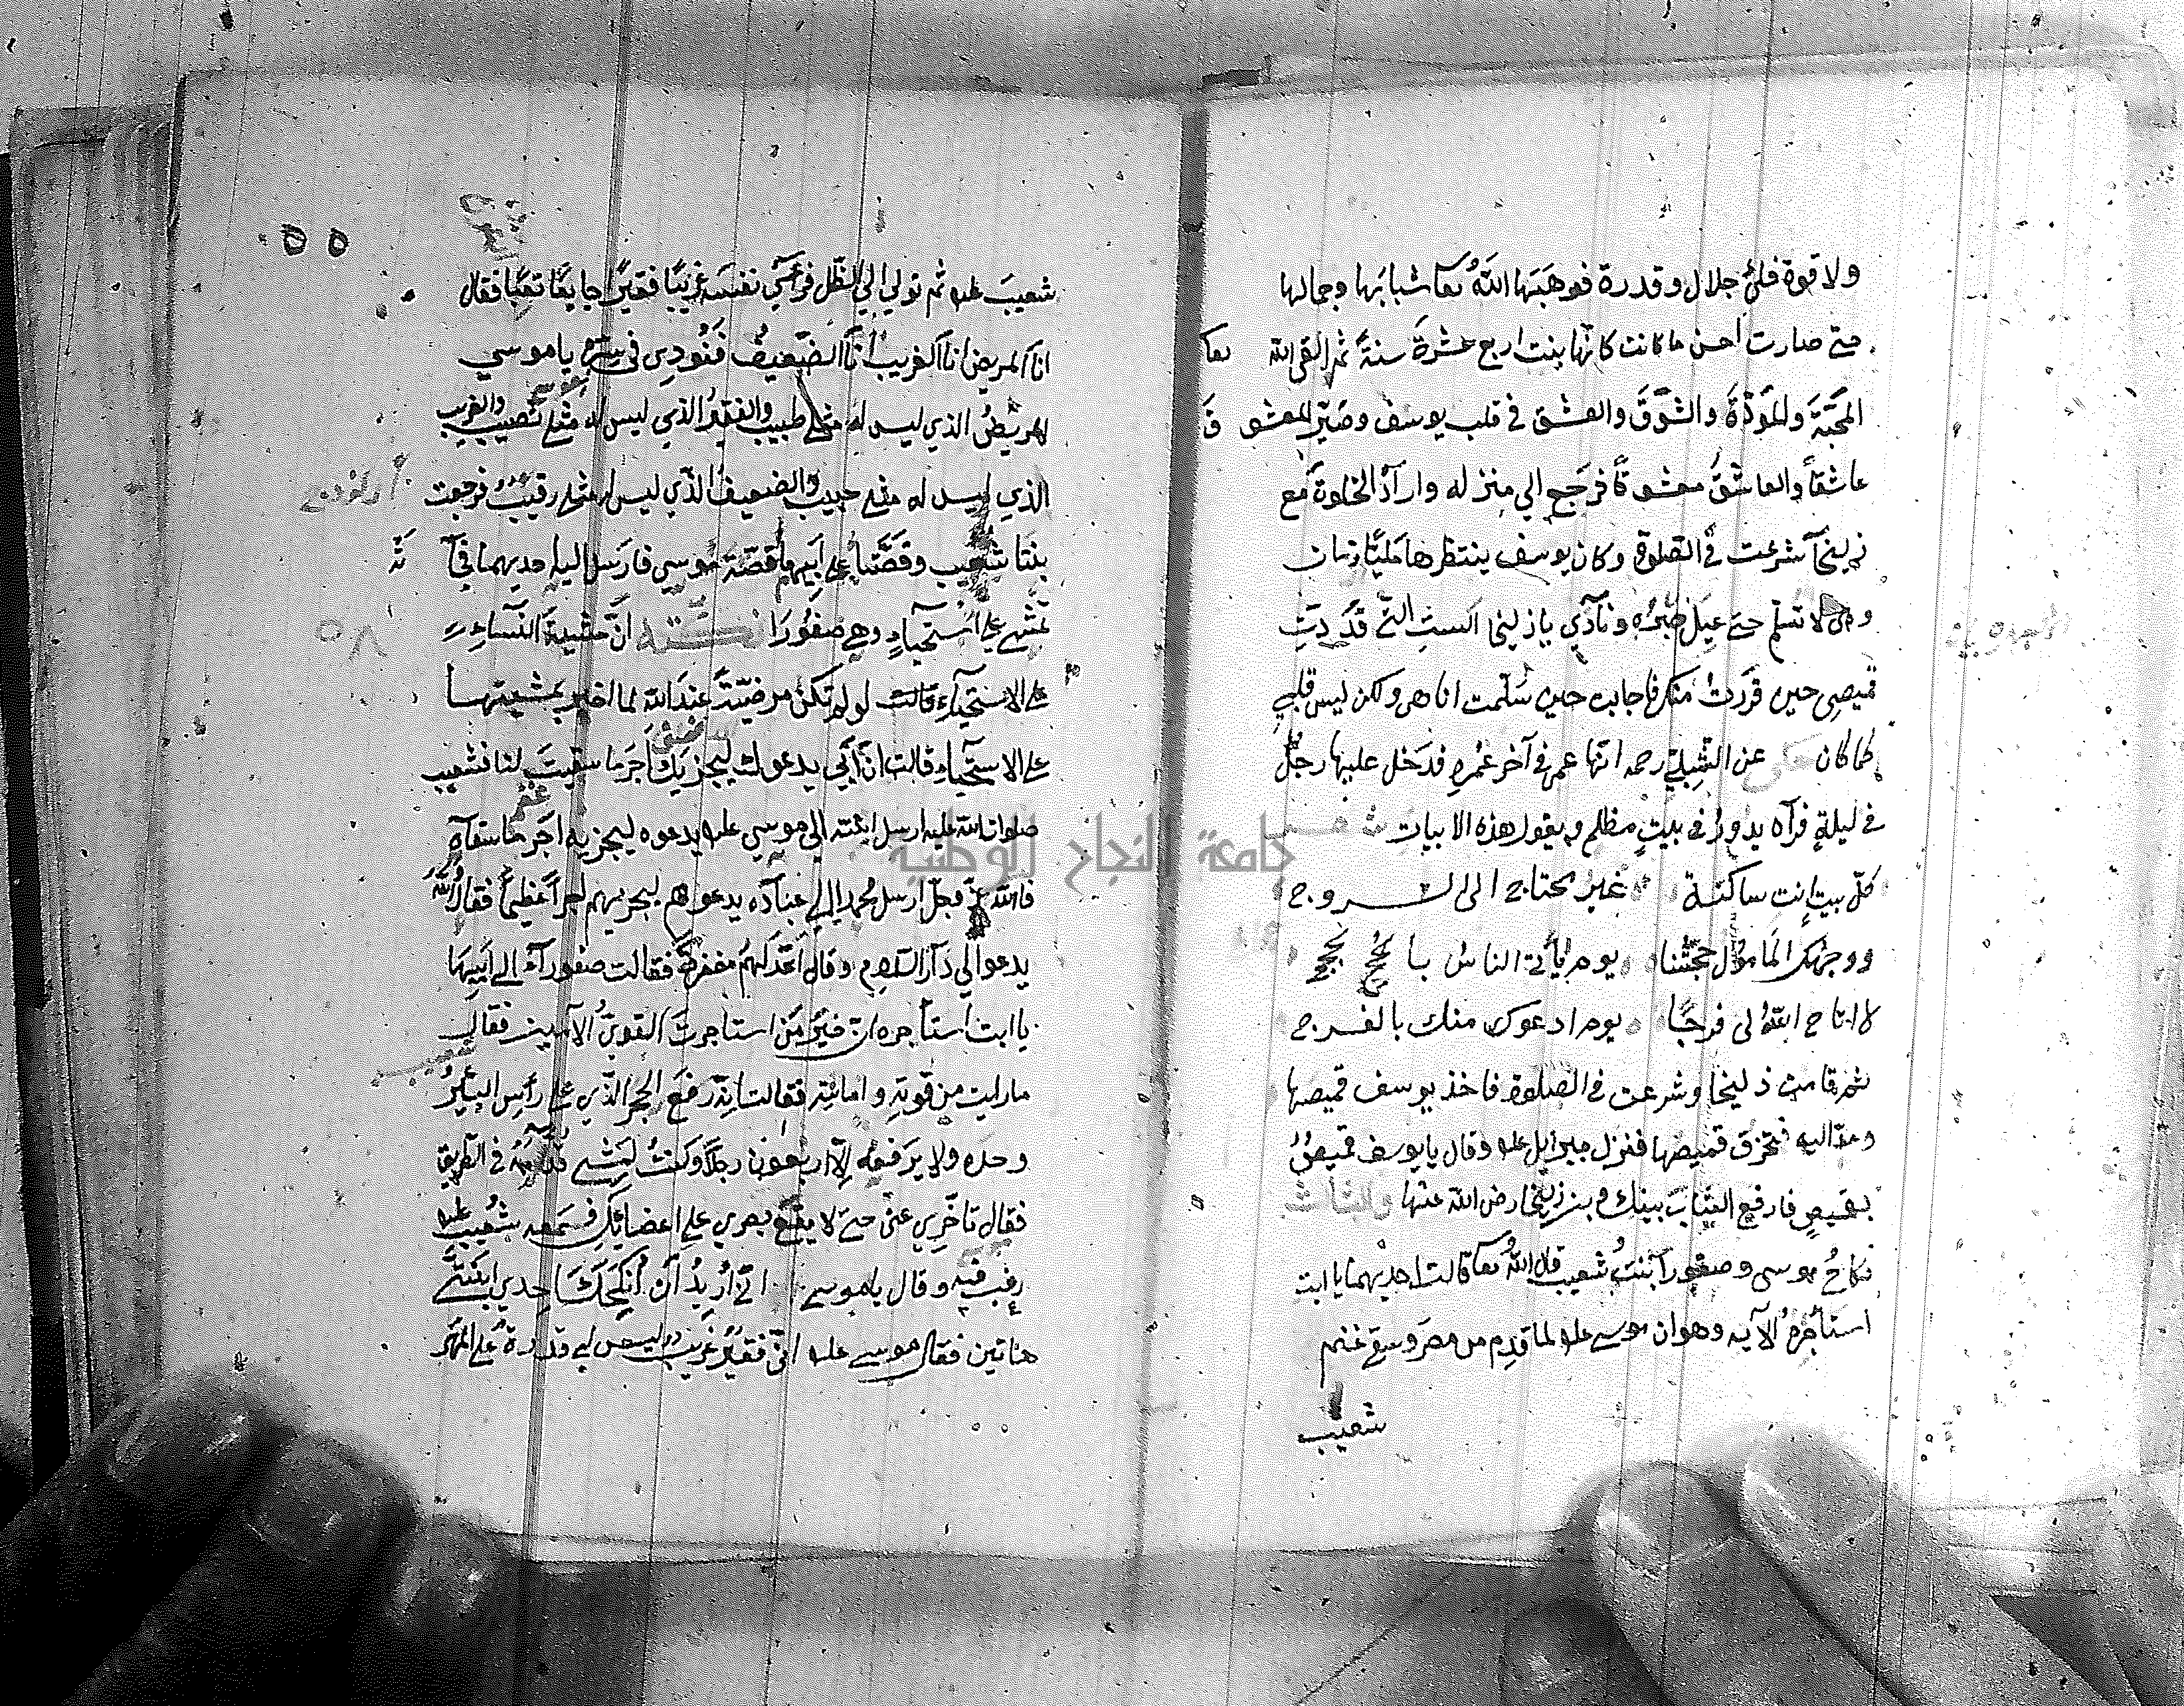 ولا قوة فلي جلال وقدرة فوهبها الله تعا شبابها وجمالها
حتى صارت احسن ما كانت كانها بنت اربع عشرة سنة ثم القى الله تعا
المحبة والمودة والشوق والعشق في قلب يوسف وصير المعشوق
عاشقا والعاشق معشوقا فرجع الي منزله وارآد الخلوة مع
زليخا شرعت في الصلوة وكان يوسف ينتظرها مليا زمان
وهي لا تسلم حتى عيل صبره ونآدي يا زليخا الست التي قددت
قميصى حين فررت منك فاجابت حين سلمت انا هى ولكن ليس قلبي
كما كان عن الشبلي رحمه انها عمى في آخر عمره فدخل عليها رجل
في ليلة فرآه يدور في بيت مظلم ويقول هذه الابيات
كل بيت انت ساكنة غير محتاج الى السروج
ووجهك المامول حجتنا يوم يأتي الناس بالحجج
لا اتاح الله لى فرجا يوم ادعوك منك بالفرج
ثم قامت زليخا وشرعت في الصلوة فاخذ يوسف قميصها
ومد اليه فتخرق قميصها فنزل جبرايل عليه وقال يا يوسف قميص
بقميص فارفع العتاب بينك وبين زليخا رضى الله عنها والثالث
نكاح موسى وصفورآ بنت شعيب قال الله تعا قالت احديهما يا ابت
استأجره الآيه وهو ان موسى عليه لما قدم من مصر وسقى غنم
شعيب
٥٥
شعيب عليه ثم تولي الي الظل فرأى نفسه غريبا فقيرا جايعا تعبا فقال
انا المريض انا الغريب انا الضعيف فنودي في سره يا موسي
المريض الذي ليس له مثلي طبيب والفقير الذي ليس له مثلي نصيب والغريب
الذي ليس له مثلي حبيب والضعيف الذي ليس له مثلي رقيب فرجعت
بنتا شعيب وقصتا على ابيهما قصة موسي فارسل اليه احديهما فجآ ته
تمشي على استحياء وهي صفورا نكتة ان مشية النسآء
على الاستحيآء قالت لو لم تكن مرضية عند الله لما اخبر بمشيتها
على الاستحياء قالت ان ابي يدعوك ليجزيك اجر ما سقيت لنا فشعيب
صلوات الله عليه ارسل ابنته الي موسي عليه يدعوه ليجزيه اجر ما سقآه
فالله عز وجل ارسل محمدا الي عبآده يدعوهم ليجزيهم اجرا عظيما فقال الله
يدعو الي دآر السلام وقال اعد لهم مغفرة فقالت صفورآء الي ابيها
يا ابت استأجره ان خير من استاجرت القوي الآمين فقال
ما رايت من قوته وامانته فقالت انه رفع الحجر الذي على رأس البئر
وحده ولا يرفعه الا اربعون رجلا وكنت امشي قدامه في الطريق
فقال تاخري عنى حتى لا يقع بصري على اعضائك فسمعه شعيب عليه
رغب فيه وقال يا موسي اني أريد ان انكحك احدي ابنتي
هاتين فقال موسي عليه اني فقير غريب وليس لي قدرة على المهر
جامعة النجاح الوطنية